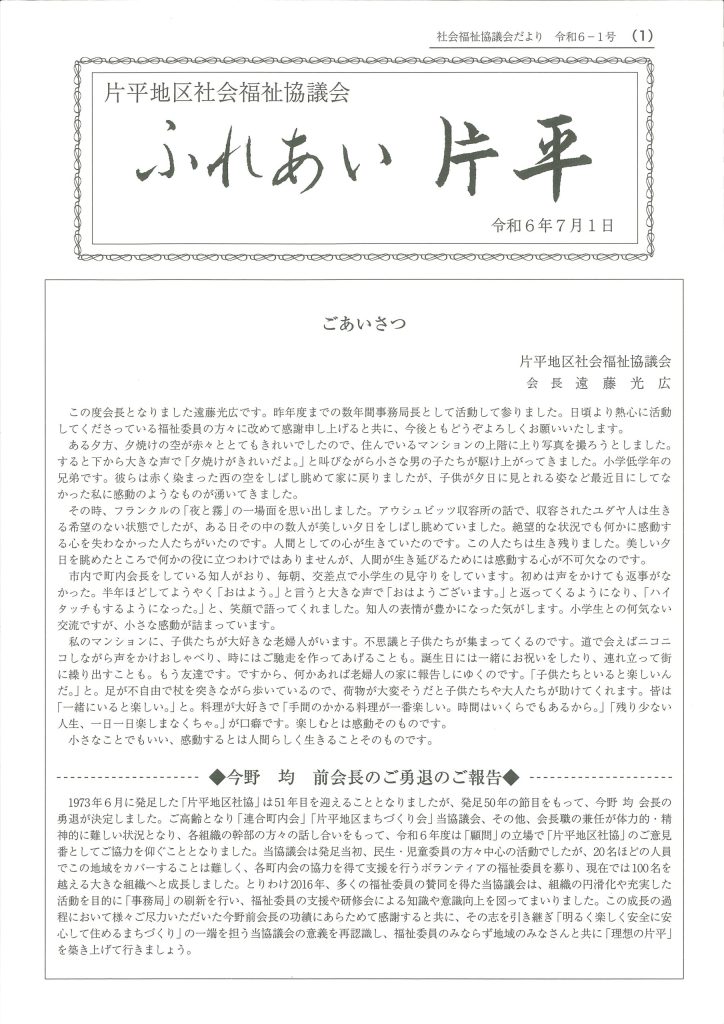 社会福祉協議会だより 令和6－1号 （1）
片平地区社会福祉協議会
ふれあい 片平
令和6年7月1日
ごあいさつ
片平地区社会福祉協議会
会 長 遠 藤 光 広
この度会長となりました遠藤光広です。昨年度までの数年間事務局長として活動して参りました。日頃より熱心に活動
してくださっている福祉委員の方々に改めて感謝申し上げると共に、今後ともどうぞよろしくお願いいたします。
ある夕方、夕焼けの空が赤々ととてもきれいでしたので、住んでいるマンションの上階に上り写真を撮ろうとしました。
すると下から大きな声で「夕焼けがきれいだよ。」と叫びながら小さな男の子たちが駆け上がってきました。小学低学年の
兄弟です。彼らは赤く染まった西の空をしばし眺めて家に戻りましたが、子供が夕日に見とれる姿など最近目にしてな
かった私に感動のようなものが湧いてきました。
その時、フランクルの「夜と霧」の一場面を思い出しました。アウシュビッツ収容所の話で、収容されたユダヤ人は生き
る希望のない状態でしたが、ある日その中の数人が美しい夕日をしばし眺めていました。絶望的な状況でも何かに感動す
る心を失わなかった人たちがいたのです。人間としての心が生きていたのです。この人たちは生き残りました。美しい夕
日を眺めたところで何かの役に立つわけではありませんが、人間が生き延びるためには感動する心が不可欠なのです。
市内で町内会長をしている知人がおり、毎朝、交差点で小学生の見守りをしています。初めは声をかけても返事がな
かった。半年ほどしてようやく「おはよう。」と言うと大きな声で「おはようございます。」と返ってくるようになり、「ハイ
タッチもするようになった。」と、笑顔で語ってくれました。知人の表情が豊かになった気がします。小学生との何気ない
交流ですが、小さな感動が詰まっています。
私のマンションに、子供たちが大好きな老婦人がいます。不思議と子供たちが集まってくるのです。道で会えばニコニ
コしながら声をかけおしゃべり、時にはご馳走を作ってあげることも。誕生日には一緒にお祝いをしたり、連れ立って街
に繰り出すことも。もう友達です。ですから、何かあれば老婦人の家に報告しにゆくのです。「子供たちといると楽しいん
だ。」と。足が不自由で杖を突きながら歩いているので、荷物が大変そうだと子供たちや大人たちが助けてくれます。皆は
「一緒にいると楽しい。」と。料理が大好きで「手間のかかる料理が一番楽しい。時間はいくらでもあるから。」「残り少ない
人生、一日一日楽しまなくちゃ。」が口癖です。楽しむとは感動そのものです。
小さなことでもいい、感動するとは人間らしく生きることそのものです。
◆今野 均 前会長のご勇退のご報告◆
1973年6月に発足した「片平地区社協」は51年目を迎えることとなりましたが、発足50年の節目をもって、今野 均 会長の
勇退が決定しました。ご高齢となり「連合町内会」「片平地区まちづくり会」当協議会、その他、会長職の兼任が体力的・精
神的に難しい状況となり、各組織の幹部の方々の話し合いをもって、令和6年度は「顧問」の立場で「片平地区社協」のご意見
番としてご協力を仰ぐこととなりました。当協議会は発足当初、民生・児童委員の方々中心の活動でしたが、20名ほどの人員
でこの地域をカバーすることは難しく、各町内会の協力を得て支援を行うボランティアの福祉委員を募り、現在では100名を
越える大きな組織へと成長しました。とりわけ2016年、多くの福祉委員の賛同を得た当協議会は、組織の円滑化や充実した
活動を目的に「事務局」の刷新を行い、福祉委員の支援や研修会による知識や意識向上を図ってまいりました。この成長の過
程において様々ご尽力いただいた今野前会長の功績にあらためて感謝すると共に、その志を引き継ぎ「明るく楽しく安全に安
心して住めるまちづくり」の一端を担う当協議会の意義を再認識し、福祉委員のみならず地域のみなさんと共に「理想の片平」
を築き上げて行きましょう。